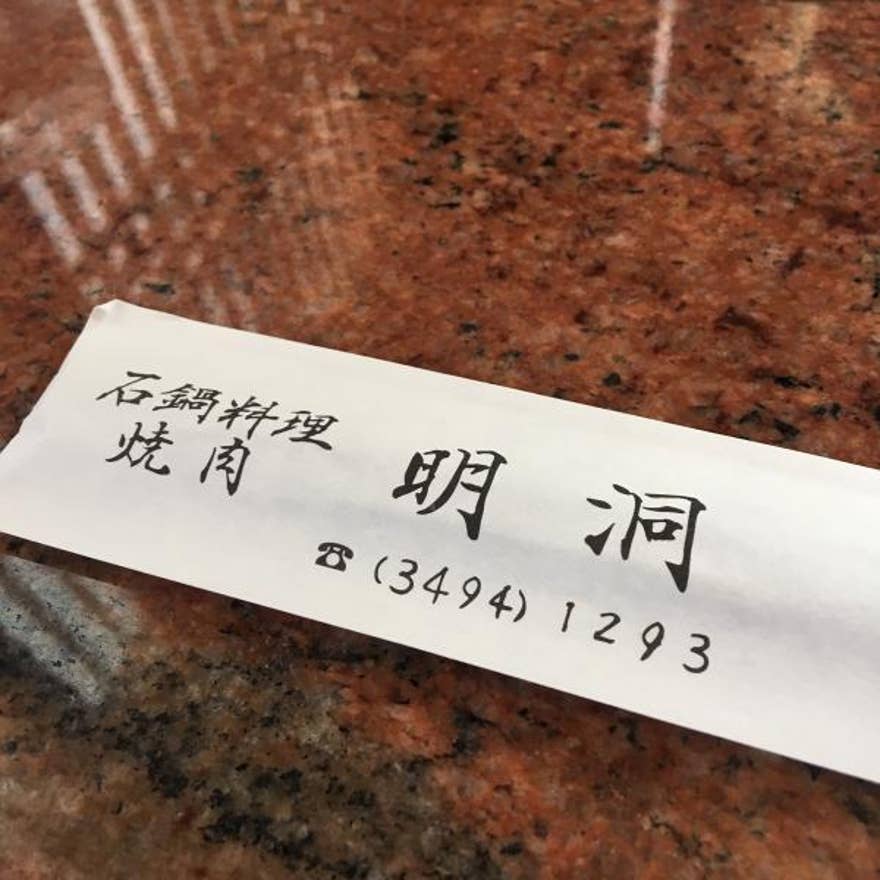 石鍋料理
焼肉
明洞
☎(3494)1293